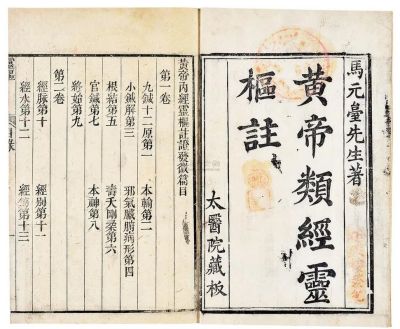 馬元臺先生著
黃帝類經靈
樞註
太醫院藏板
黃帝內經靈樞註證發微篇目
第一卷
九鍼十二原第一 本輸第二
小鍼解第三 邪氣臟腑病形第四
根結第五 壽夭剛柔第六
官鍼第七 本神第八
終始第九
第二卷
經脈第十 經別第十一
經水第十二 經筋第十三